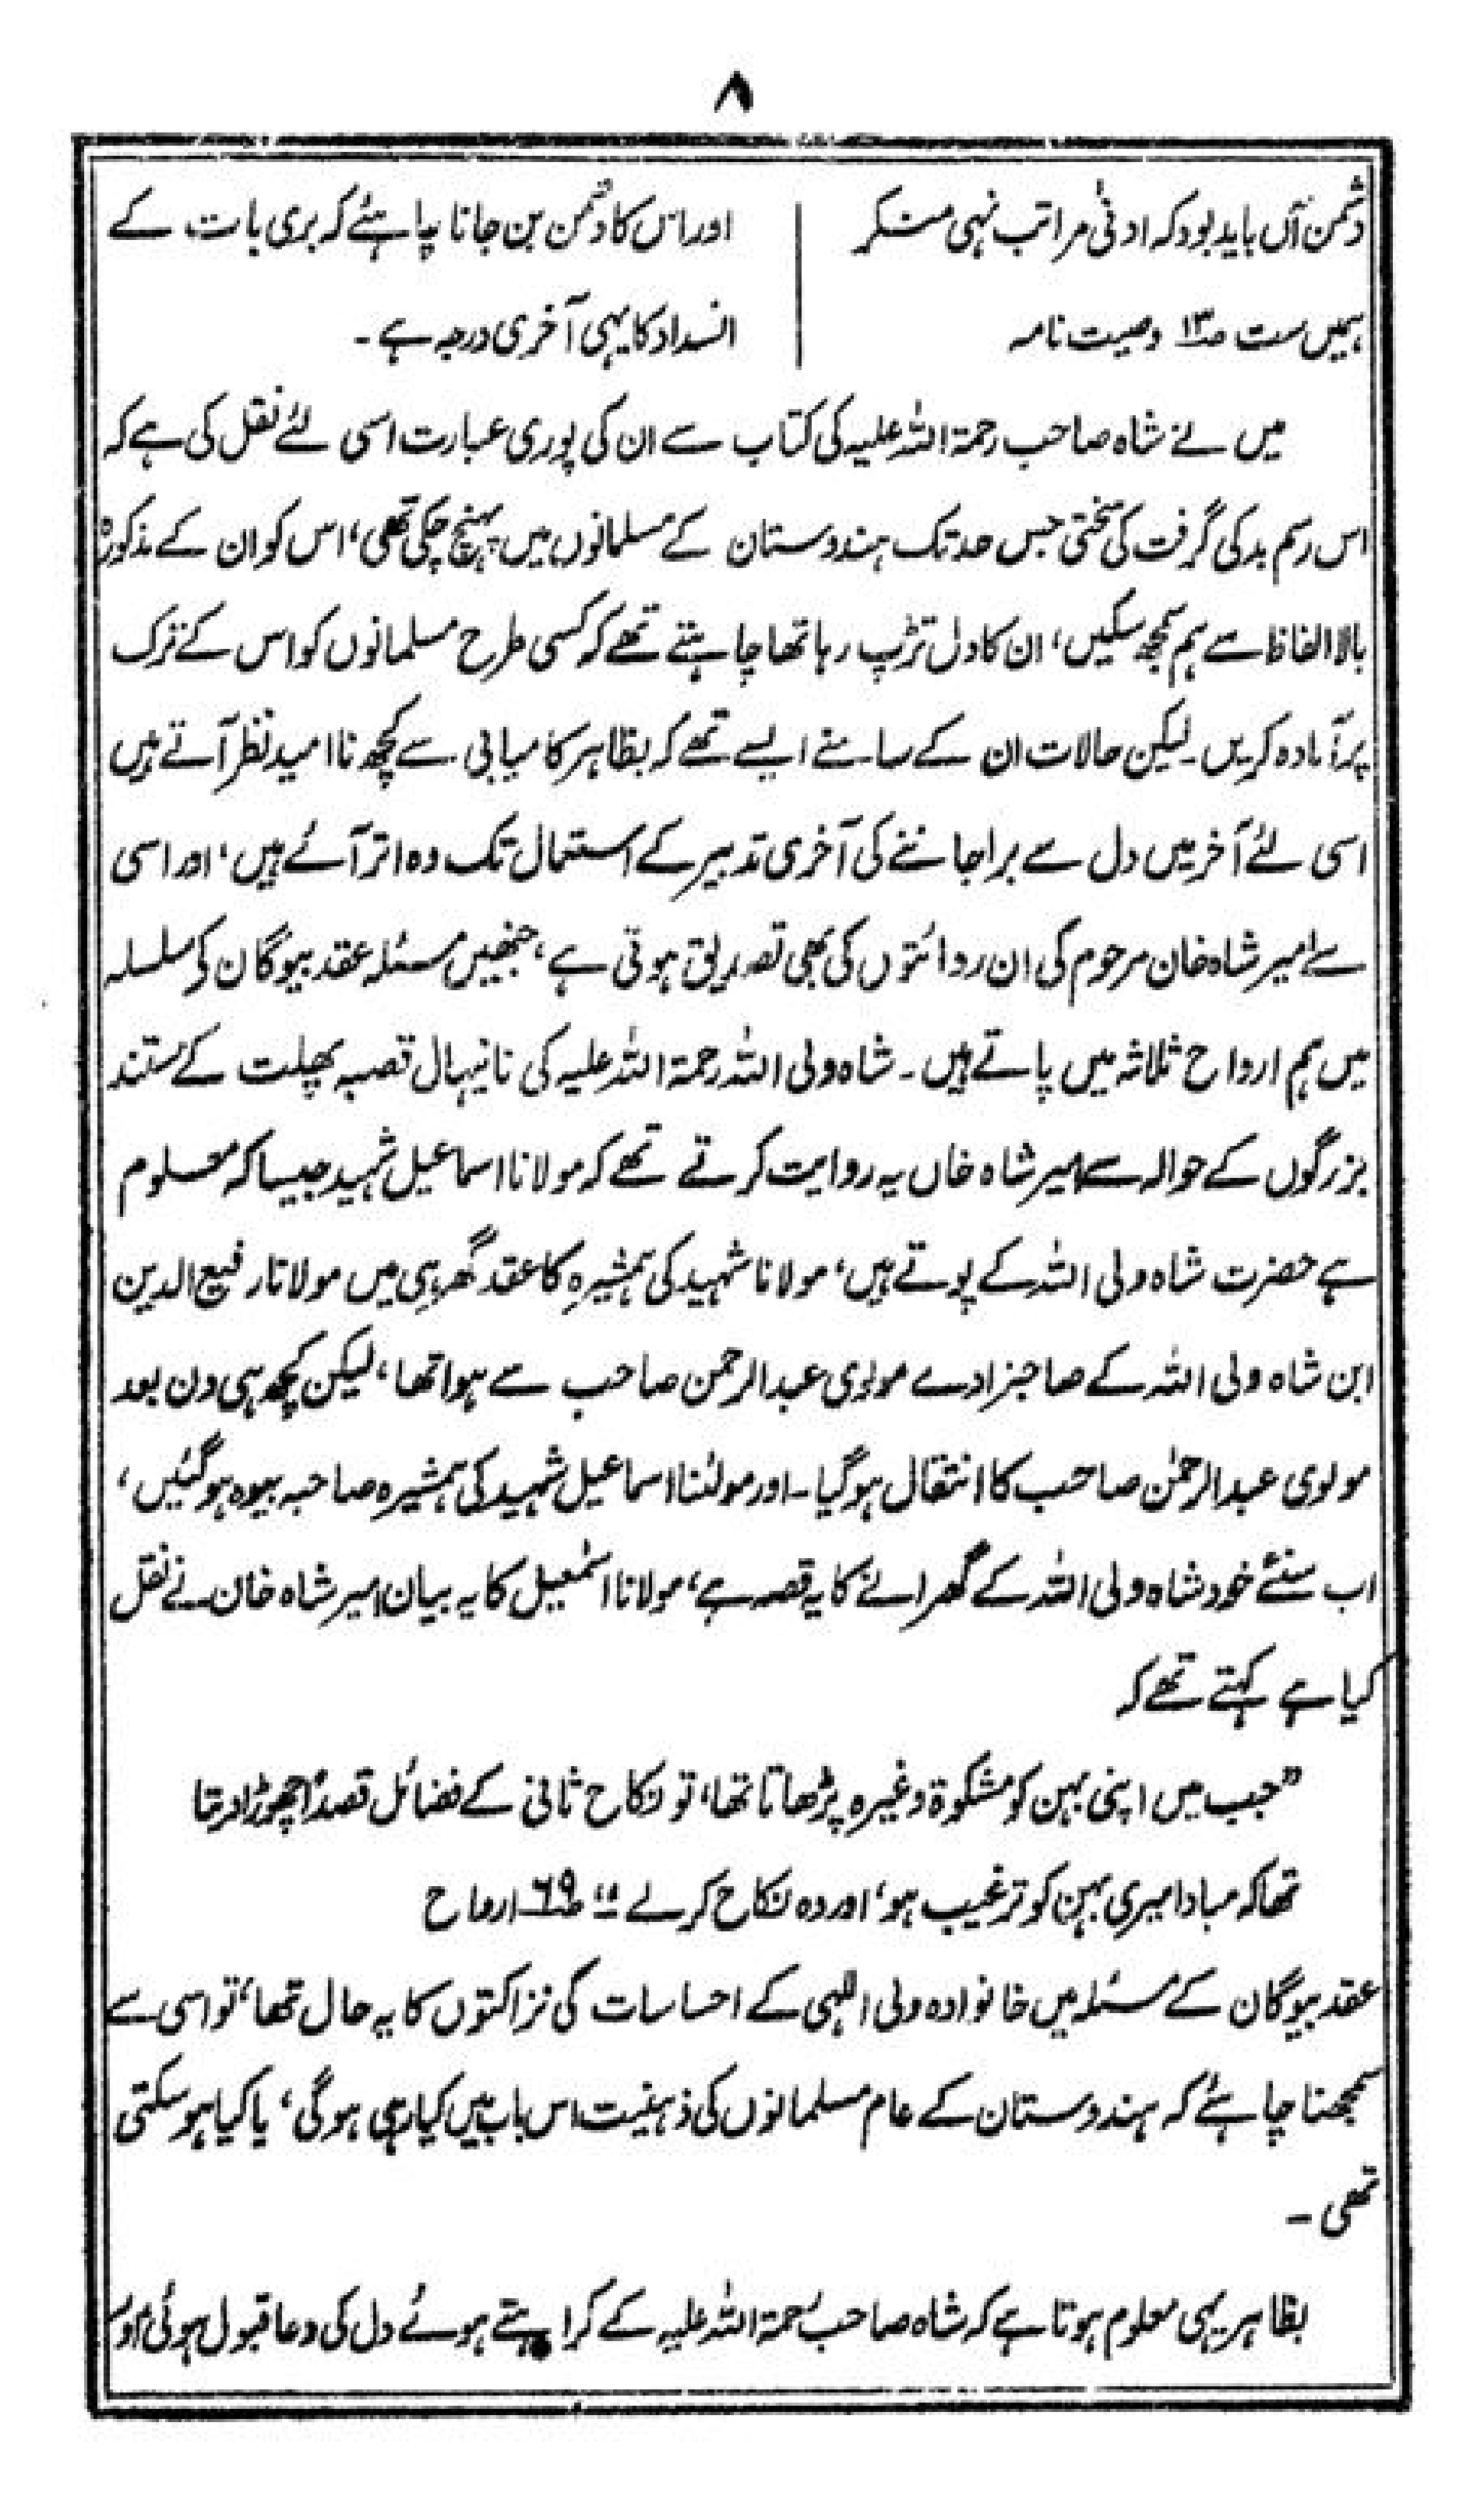 ۸
دشمن آں باید بود کہ ادنیٰ مراتب نہی منکر
ہمیں ست ص۱۳ وصیت نامہ
اور اس کا دشمن بن جانا چاہئے کہ بری بات کے
انسداد کا یہی آخری درجہ ہے۔
میں نے شاہ صاحب رحمۃ اللہ علیہ کی کتاب سے ان کی پوری عبارت اسی لئے نقل کی ہے کہ
اس رسم بد کی گرفت کی سختی جس حد تک ہندوستان کے مسلمانوں میں پہنچ چکی تھی، اس کو ان کے مذکورہ
بالا الفاظ سے ہم سمجھ سکیں، ان کا دل تڑپ رہا تھا چاہتے تھے کہ کسی طرح مسلمانوں کو اس کے ترک
پر آمادہ کریں۔ لیکن حالات ان کے سامنے ایسے تھے کہ بظاہر کامیابی سے کچھ نا امید نظر آتے ہیں
اسی لئے آخر میں دل سے برا جاننے کی آخری تدبیر کے استعمال تک وہ اتر آئے ہیں، اور اسی
سے امیر شاہ خان مرحوم کی ان روائتوں کی بھی تصدیق ہوتی ہے، جنھیں مسئلہ عقد بیوگان کی سلسلہ
میں ہم ارواح ثلاثہ میں پاتے ہیں۔ شاہ ولی اللہ رحمۃ اللہ علیہ کی نانیہال قصبہ پھلت کے مستند
بزرگوں کے حوالہ سے امیر شاہ خاں یہ روایت کرتے تھے کہ مولانا اسماعیل شہید جیسا کہ معلوم
ہے حضرت شاہ ولی اللہ کے پوتے ہیں، مولانا شہید کی ہمشیرہ کا عقد گھر ہی میں مولانا رفیع الدین
ابن شاہ ولی اللہ کے صاحبزادے مولوی عبدالرحمن صاحب سے ہوا تھا، لیکن کچھ ہی دن بعد
مولوی عبدالرحمٰن صاحب کا انتقال ہو گیا۔ اور مولٰنا اسماعیل شہید کی ہمشیرہ صاحبہ بیوہ ہو گئیں،
اب سنئے خود شاہ ولی اللہ کے گھرانے کا یہ قصہ ہے، مولانا اسمٰعیل کا یہ بیان امیر شاہ خان نے نقل
کیا ہے کہتے تھے کہ
”جب میں اپنی بہن کو مشکوۃ وغیرہ پڑھاتا تھا، تو نکاح ثانی کے فضائل قصداً چھوڑا دیتا
تھا کہ مبادا میری بہن کو ترغیب ہو، اور وہ نکاح کر لے“ ص۶۹ ارواح
عقد بیوگان کے مسئلہ میں خانوادہ ولی اللہی کے احساسات کی نزاکتوں کا یہ حال تھا، تو اسی سے
سمجھنا چاہئے کہ ہندوستان کے عام مسلمانوں کی ذہنیت اس باب میں کیا رہی ہوگی، یا کیا ہو سکتی
تھی۔
بظاہر یہی معلوم ہوتا ہے کہ شاہ صاحب رحمۃ اللہ علیہ کے کراہتے ہوئے دل کی دعا قبول ہوئی اور